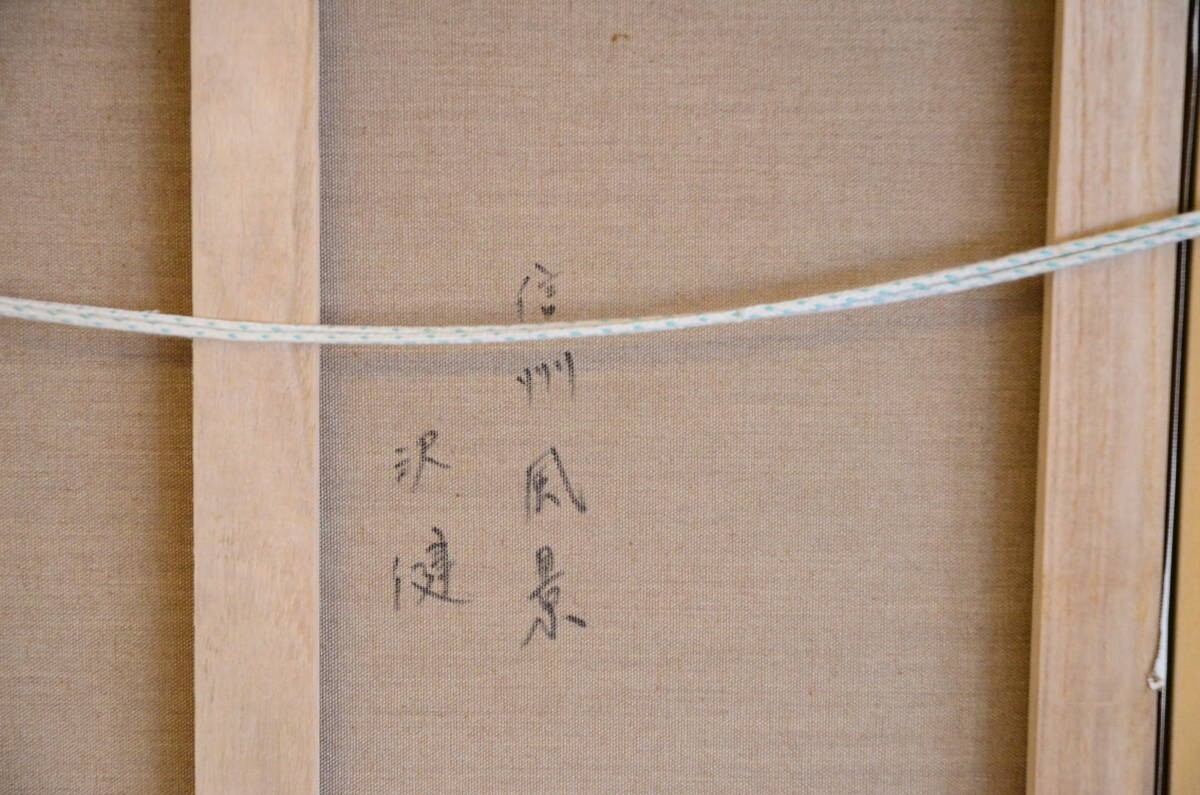 信州風景
沢健